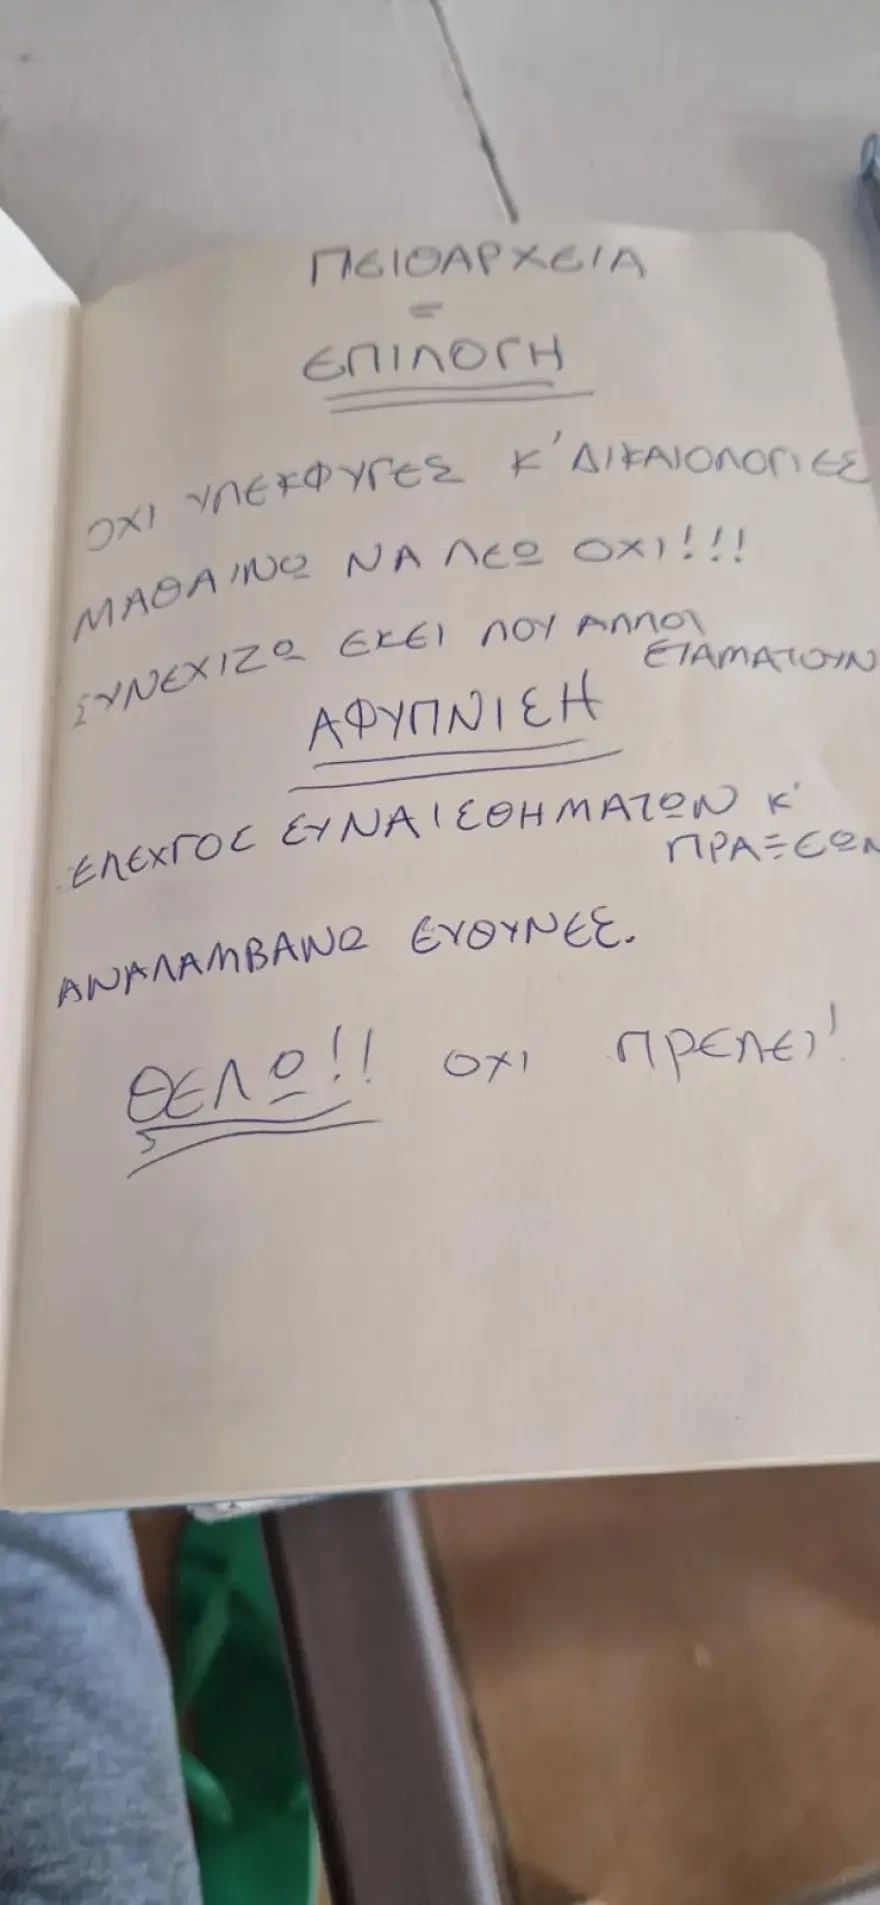 ΠΕΙΘΑΡΧΕΙΑ
=
ΕΠΙΛΟΓΗ
ΟΧΙ ΥΠΕΚΦΥΓΕΣ Κ' ΔΙΚΑΙΟΛΟΓΙΕΣ
ΜΑΘΑΙΝΩ ΝΑ ΛΕΩ ΟΧΙ!!!
ΣΥΝΕΧΙΖΩ ΕΚΕΙ ΠΟΥ ΑΛΛΟΙ
ΣΤΑΜΑΤΟΥΝ
ΑΦΥΠΝΙΣΗ
ΕΛΕΧΓΟΣ ΣΥΝΑΙΣΘΗΜΑΤΩΝ Κ'
ΠΡΑΞΕΩΝ
ΑΝΑΛΑΜΒΑΝΩ ΕΥΘΥΝΕΣ.
ΘΕΛΩ!! ΟΧΙ ΠΡΕΠΕΙ!